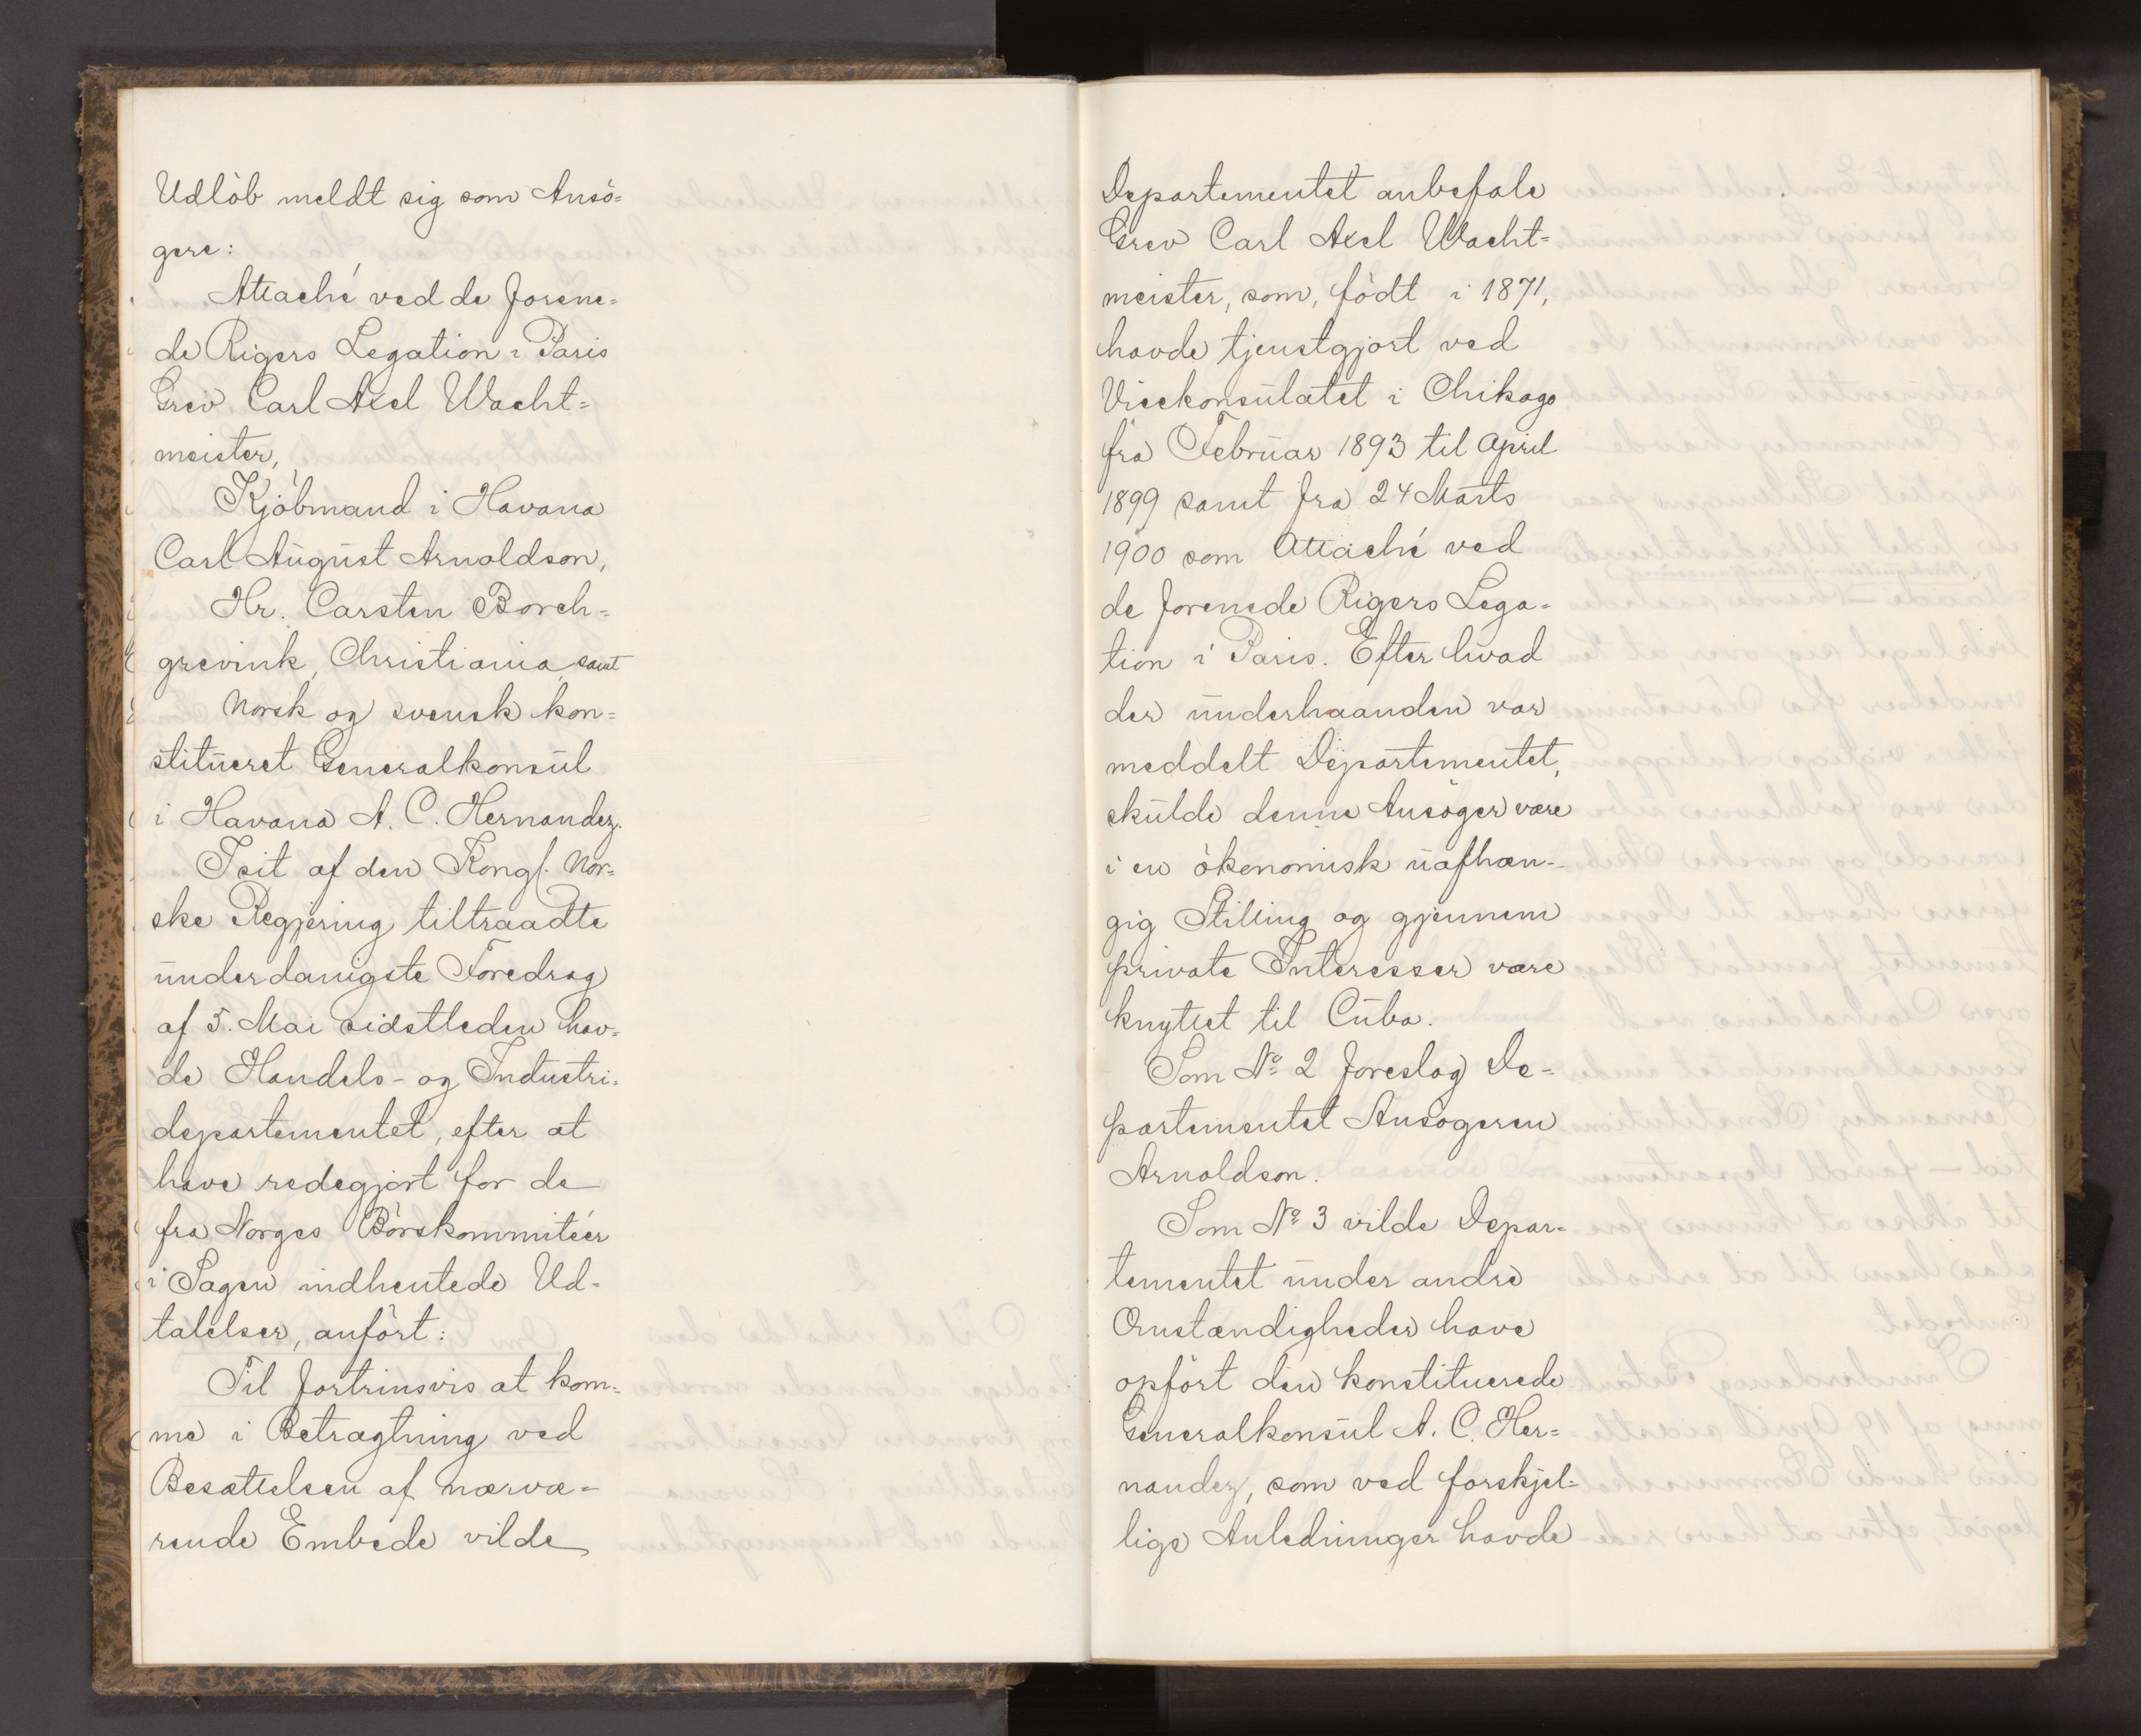 Udløb meldt sig som Ansø=
gere:
Attaché ved de Forene=
de Rigers Legation i Paris
Grev Carl Axel Wacht=
meister,
Kjøbmand i Havana
Carl August Arnoldson,
Hr. Carsten Borch=
grevink, Christiania, samt
Norsk og svensk kon=
stitueret Generalkonsul
i Havana A. C. Hernandez.
I eit af den Kongl. Nor=
ske Regjering tiltraadte
underdanigste Foredrag
af 5. Mai sidstleden hav=
de Handels- og Industri=
departementet, efter at
have redegjort for de
fra Norges Børskommitéer
i Sagen indhentede Ud=
talelser, anført:
Til fortrinsvis at kom=
me i Betragtning ved
Besættelsen af nærvæ=
rende Embede vilde
Departementet anbefale
Grev Carl Axel Wacht=
meister, som, født i 1871,
havde tjenstgjort ved
Vicekonsulatet i Chikago
fra Februar 1893 til April
1899 samt fra 24 Marts
1900 som Attaché ved
de forenede Rigers Lega=
tion i Paris. Efter hvad
der underhaanden var
meddelt Departementet,
skulde denne Ansøger være
i en økonomisk uafhæn=
gig Stilling og gjennem
private Interesser være
knyttet til Cuba.
Som No 2 foreslog De=
partementet Ansøgeren
Arnoldson.
Som No 3 vilde Depar=
tementet under andre
Omstændigheder have
opført den konstituerede
Generalkonsul A. C. Her=
nandez, som ved forskjel=
lige Anledninger havde